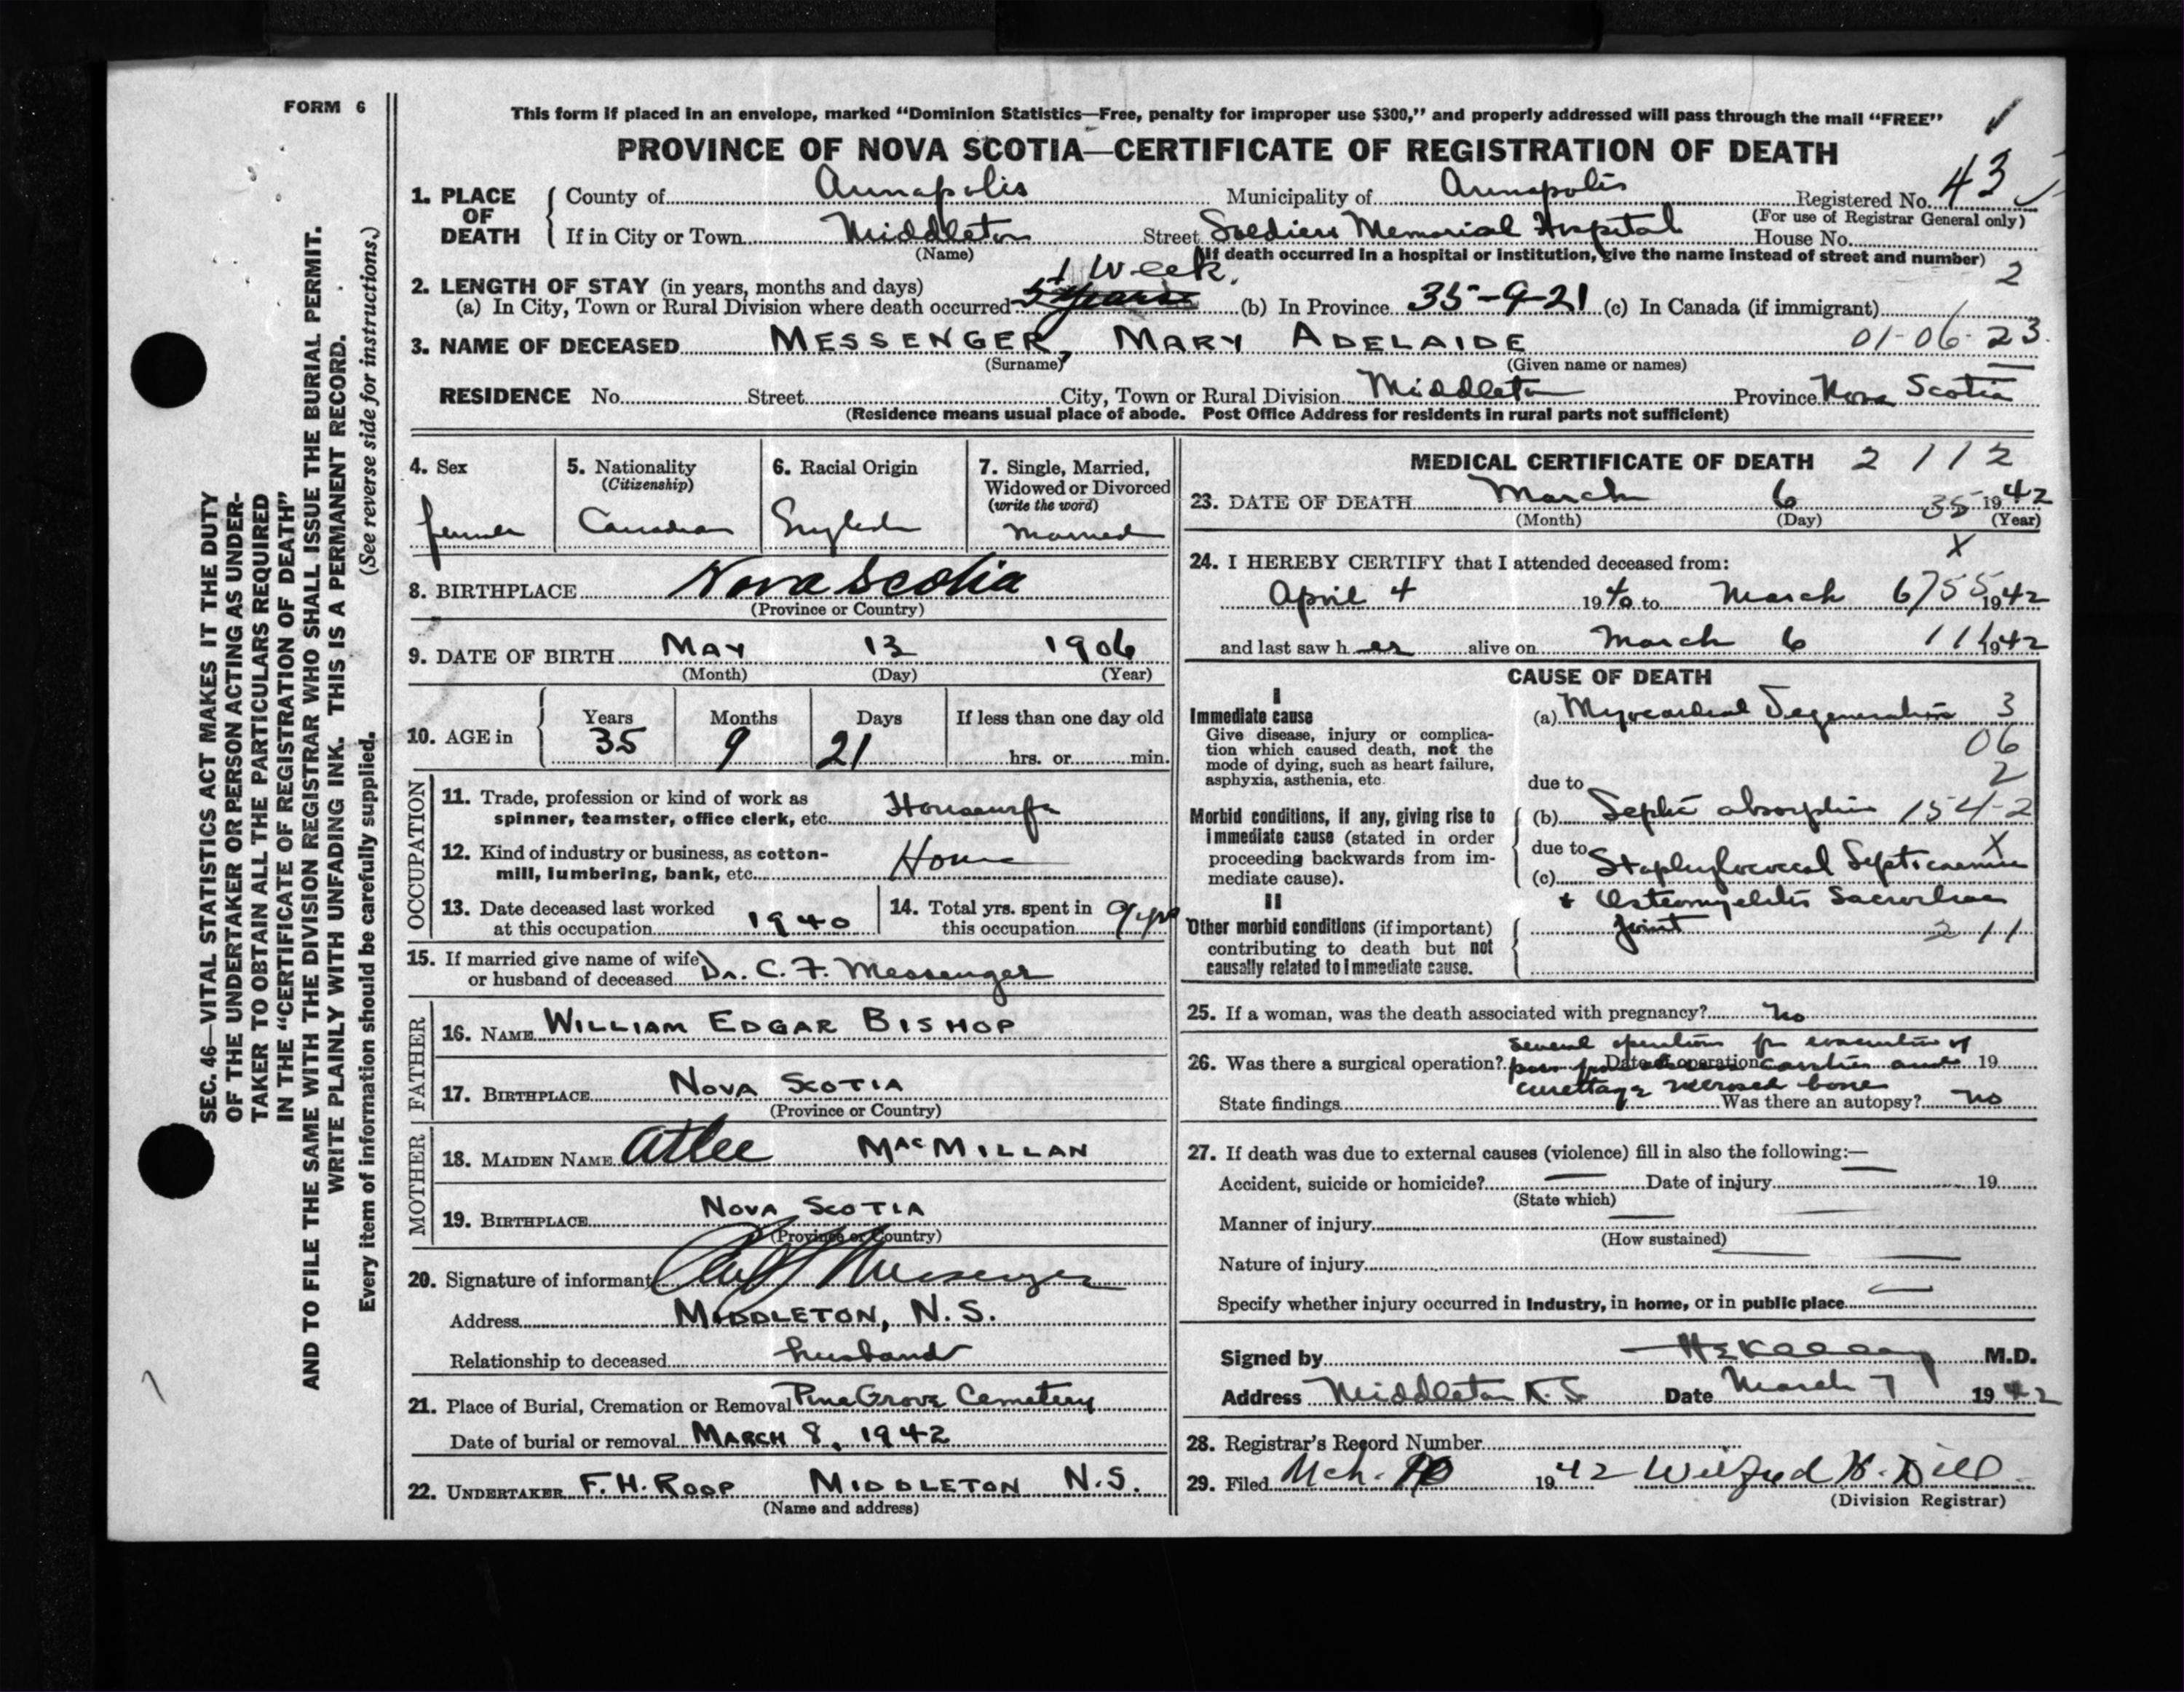 FORM 6
This form if placed in an envelope, marked "Dominion Statistics—Free, penalty for improper use $300," and properly addressed will pass through the mail "FREE"
PROVINCE OF NOVA SCOTIA—CERTIFICATE OF REGISTRATION OF DEATH
1. PLACE OF DEATH
County of Annapolis Municipality of Annapolis Registered No. 43
(For use of Registrar General only)
If in City or Town Middleton Street Soldiers Memorial Hospital House No.
(Name) (If death occurred in a hospital or institution, give the name instead of street and number)
1 Week. 2
2. LENGTH OF STAY (in years, months and days)
(a) In City, Town or Rural Division where death occurred 5 years (b) In Province 35-9-21 (c) In Canada (if immigrant)
3. NAME OF DECEASED MESSENGER, MARY ADELAIDE 01-06-23
(Surname) (Given name or names)
RESIDENCE No. Street City, Town or Rural Division Middleton Province Nova Scotia
(Residence means usual place of abode. Post Office Address for residents in rural parts not sufficient)
4. Sex
female
5. Nationality
(Citizenship)
Canadian
6. Racial Origin
English
7. Single, Married,
Widowed or Divorced
(write the word)
Married
8. BIRTHPLACE Nova Scotia
(Province or Country)
9. DATE OF BIRTH MAY 13 1906
(Month) (Day) (Year)
10. AGE in
Years Months Days If less than one day old
35 9 21 hrs. or min.
OCCUPATION
11. Trade, profession or kind of work as
spinner, teamster, office clerk, etc. Housewife
12. Kind of industry or business, as cotton-
mill, lumbering, bank, etc. Home
13. Date deceased last worked
at this occupation 1940
14. Total yrs. spent in
this occupation 9 yrs
15. If married give name of wife
or husband of deceased Dr. C. F. Messenger
FATHER
16. NAME WILLIAM EDGAR BISHOP
17. BIRTHPLACE NOVA SCOTIA
(Province or Country)
MOTHER
18. MAIDEN NAME Atlee MACMILLAN
19. BIRTHPLACE NOVA SCOTIA
(Province or Country)
20. Signature of informant Messenger
Address MIDDLETON, N.S.
Relationship to deceased husband
21. Place of Burial, Cremation or Removal Pine Grove Cemetery
Date of burial or removal MARCH 8, 1942
22. UNDERTAKER F.H. ROOP MIDDLETON N.S.
(Name and address)
MEDICAL CERTIFICATE OF DEATH 2 1 1 2
23. DATE OF DEATH March 6 35 1942
(Month) (Day) (Year)
X
24. I HEREBY CERTIFY that I attended deceased from:
April 4 1940 to March 6 755 1942
and last saw her alive on March 6 111 1942
CAUSE OF DEATH
I
Immediate cause
Give disease, injury or complica-
tion which caused death, not the
mode of dying, such as heart failure,
asphyxia, asthenia, etc.
(a) Myocardial Degeneration 3
06
due to 2
Morbid conditions, if any, giving rise to
immediate cause (stated in order
proceeding backwards from im-
mediate cause).
(b) Septic absorption 154-2
due to X
(c) Staphylococcal Septicaemia
+ Osteomyelitis Sacroiliac
joint 2 11
II
Other morbid conditions (if important)
contributing to death but not
causally related to immediate cause.
25. If a woman, was the death associated with pregnancy? No
several operations for evacuation of
26. Was there a surgical operation? pus Date of operation cavities and 19
curettage necrosed bone
State findings Was there an autopsy? no
27. If death was due to external causes (violence) fill in also the following:—
Accident, suicide or homicide? Date of injury 19
(State which)
Manner of injury
(How sustained)
Nature of injury
Specify whether injury occurred in Industry, in home, or in public place
Signed by M.D.
Address Middleton N.S. Date March 7 1942
28. Registrar's Record Number
29. Filed Mch. 10 1942 Wilfred H. Dill
(Division Registrar)
SEC. 46—VITAL STATISTICS ACT MAKES IT THE DUTY
OF THE UNDERTAKER OR PERSON ACTING AS UNDER-
TAKER TO OBTAIN ALL THE PARTICULARS REQUIRED
IN THE "CERTIFICATE OF REGISTRATION OF DEATH"
AND TO FILE THE SAME WITH THE DIVISION REGISTRAR WHO SHALL ISSUE THE BURIAL PERMIT.
WRITE PLAINLY WITH UNFADING INK. THIS IS A PERMANENT RECORD.
Every item of information should be carefully supplied. (See reverse side for instructions.)